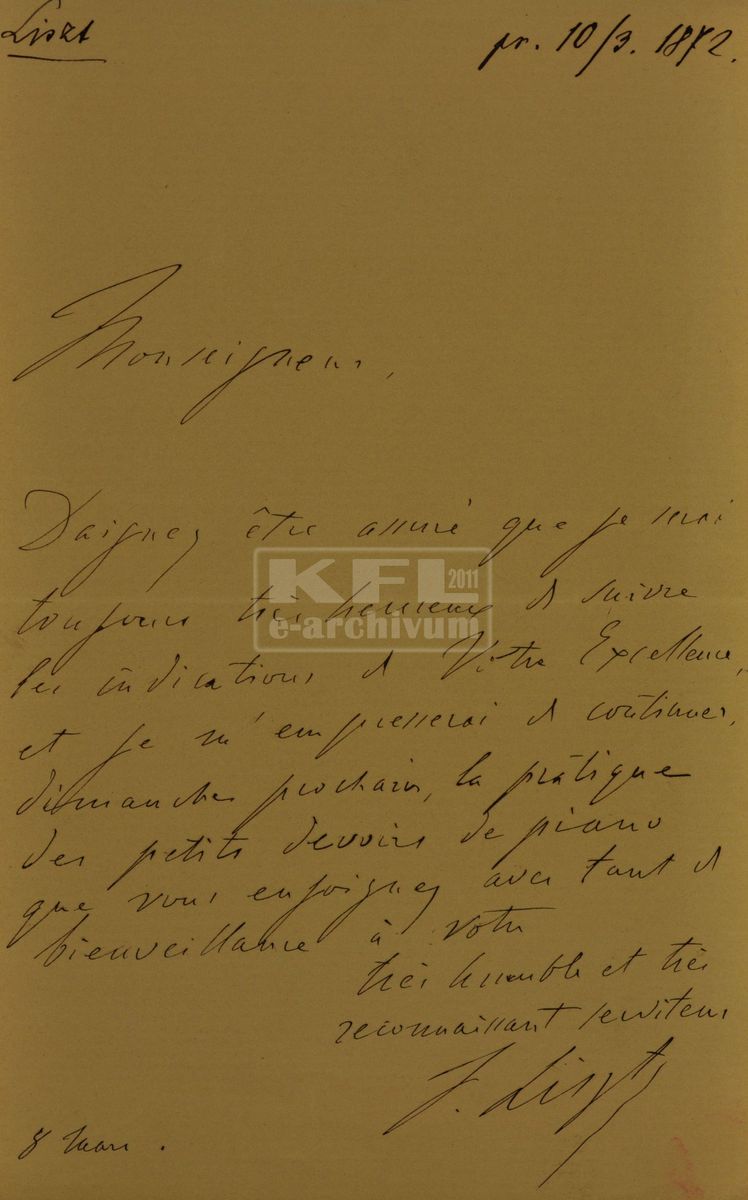 Liszt
pr. 10/3. 1872.
Monseigneur,
Daignez être assuré que je serai
toujours très heureux de suivre
les indications de Votre Excellence,
et je m'empresserai de continuer,
dimanche prochain, la pratique
des petits devoirs de piano
que vous enjoignez avec tant de
bienveillance à votre
très humble et très
reconnaissant serviteur
F. Liszt
8 Mars.
KFL 2011
e-archivum